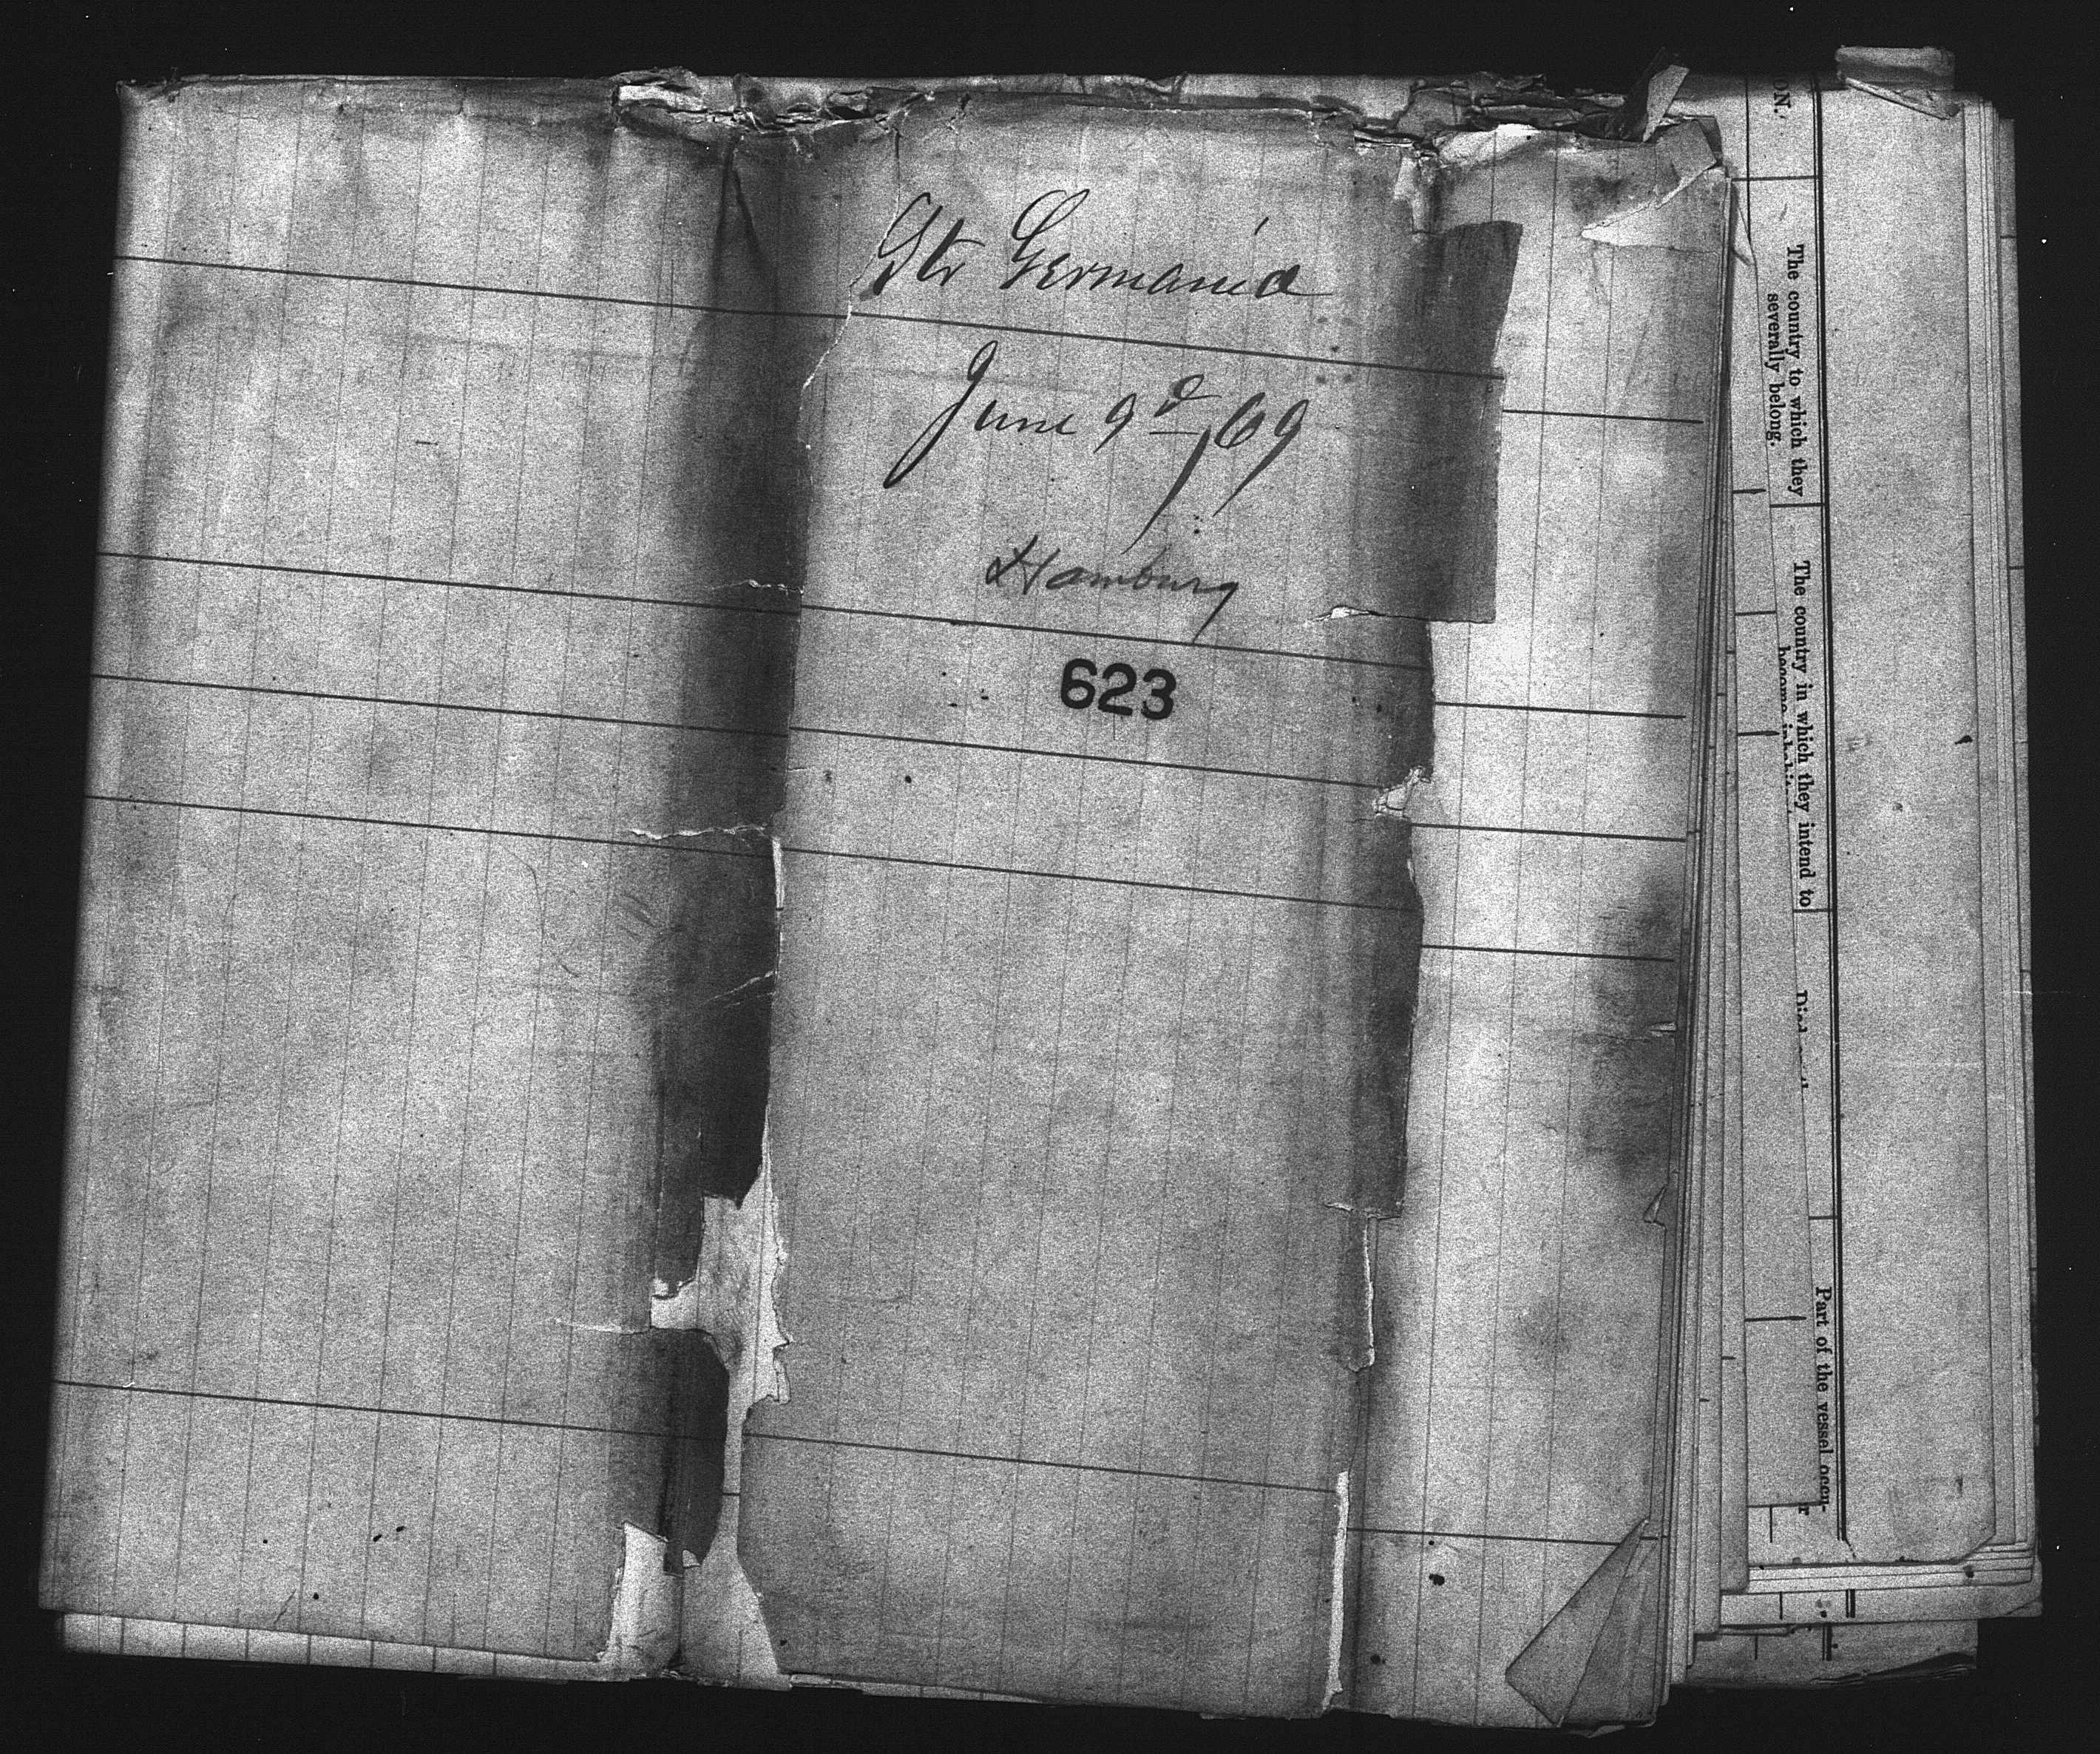 Str Germania
June 9d /69
Hamburg
623
ON.
The country to which they
severally belong.
The country in which they intend to
become
Died
Part of the vessel occu-